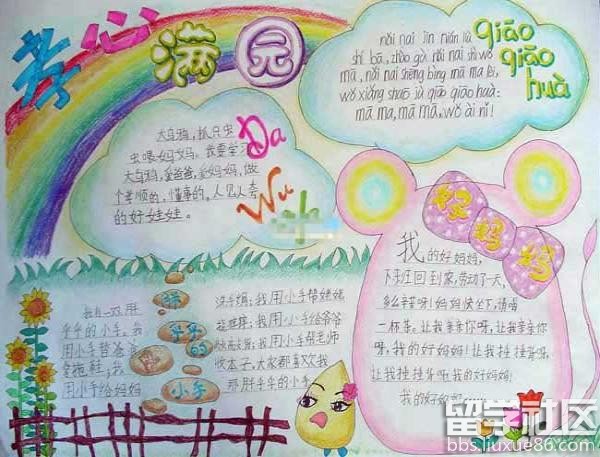 孝心满园
qiāo
qiāo
huà
nǎi nai jīn nián
mā, nǎi nai shēng bìng mā ma
wǒ xiǎng shuō jù qiāo qiāo huà:
mā ma, mā mā, wǒ ài nǐ!
Da
Wu
大乌鸦,抓只虫
虫喂妈妈。我要学习
大乌鸦,爱爸爸,爱妈妈,做
个孝顺的,懂事的。人见人夸
的好娃娃。
好妈妈
我的好妈妈,
下班回到家,劳动了一天,
多么辛苦呀!妈妈快坐下,请喝
一杯茶。让我亲亲你呀,让我亲亲你
呀,我的好妈妈!
让我
我的好妈妈!
我的好妈妈
胖乎乎的小手
我有一双胖
乎乎的小手。我
用小手替爸爸
拿拖鞋;我
用小手给妈妈
洗手绢;我用小手帮姥姥
我用小手给爷爷
我用小手帮老师
收本子,大家都喜欢我
那胖乎乎的小手。
留学社区
bbs.liuxue86.com